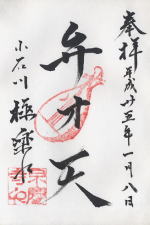 奉拝 平成廿五年一月八日
弁才天
小石川 極楽水